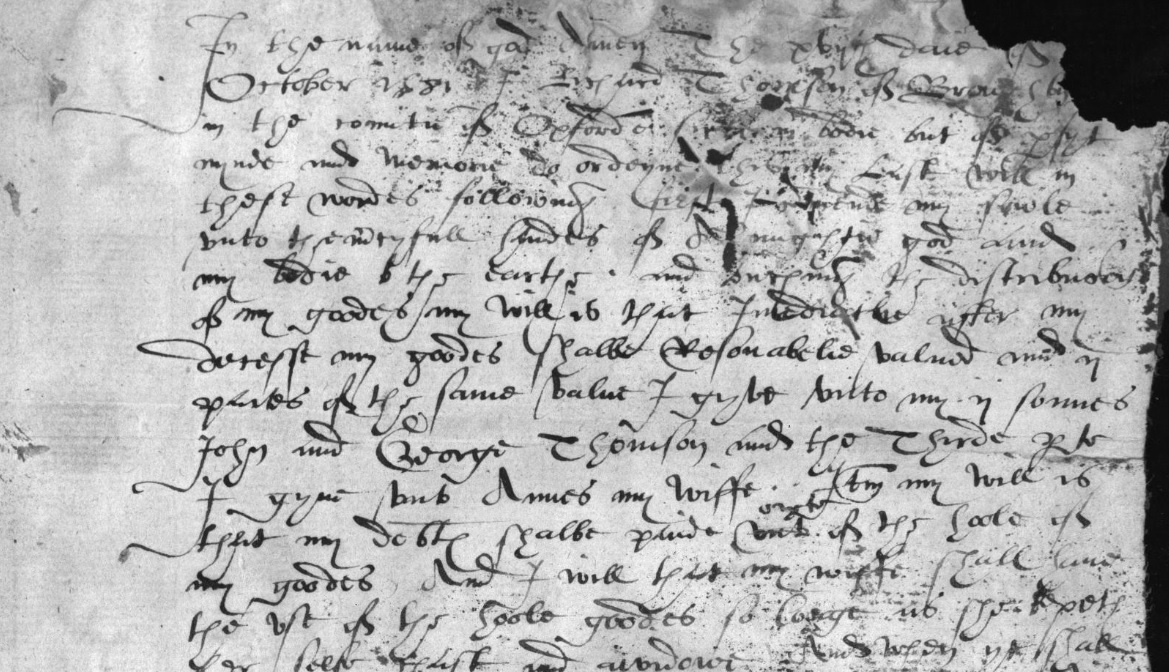 In the name of god Amen The xviijth daie of
October 1581 I Richard Thomson of Brough
in the comitie of Oxforde in bodie but of pfyt
minde and memorie do ordeyne this my Last will in
these wordes followinge first I my sowle
vnto the mcyfull handes of Almightie god and
my bodie to the earthe and the distribucon
of my goodes my will is that Imediatlie after my
decesse my goodes shalbe Resonabelie valued and ij
partes of the same value I gyve vnto my ij sonnes
John and George Thomson and the Thirde pte
I gyve vnto Annes my wiffe Itm my will is
that my debts shalbe paide owte of the hoole of
my goodes And I will that my wiffe shall have
the vse of the hoole goodes so longe as she kepeth
her selfe and a widowe And when she shall